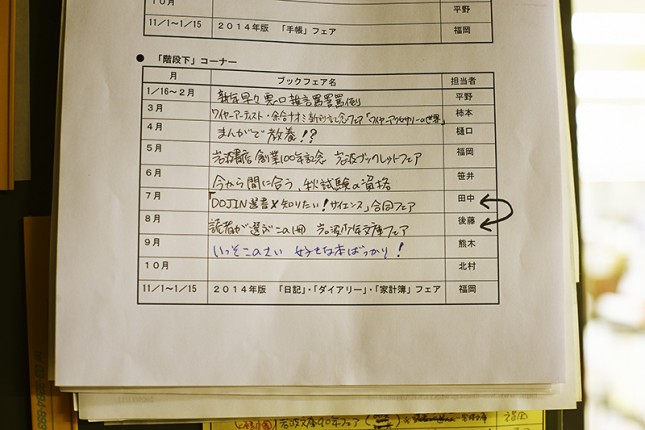 10月 平野
11/1~1/15 2014年版 「手帳」フェア 福岡
● 「階段下」コーナー
月 ブックフェア名 担当者
1/16~2月 新年早々 悪口雑言罵詈罵倒 平野
3月 ワイヤーアーティスト・余合ナオミ新刊記念フェア「ワイヤーアクセサリーの世界」 柿本
4月 まんがで教養!? 樋口
5月 岩波書店創業100年記念 岩波ブックレットフェア 福岡
6月 今から間に合う、秋試験の資格 笹井
7月 「DOJIN選書×知りたい!サイエンス」合同フェア 田中
8月 読者が選ぶこの1冊 岩波少年文庫フェア 後藤
9月 いっそこのさい 好きな本ばっかり! 熊木
10月 北村
11/1~1/15 2014年版 「日記」・「ダイアリー」・「家計簿」フェア 福岡